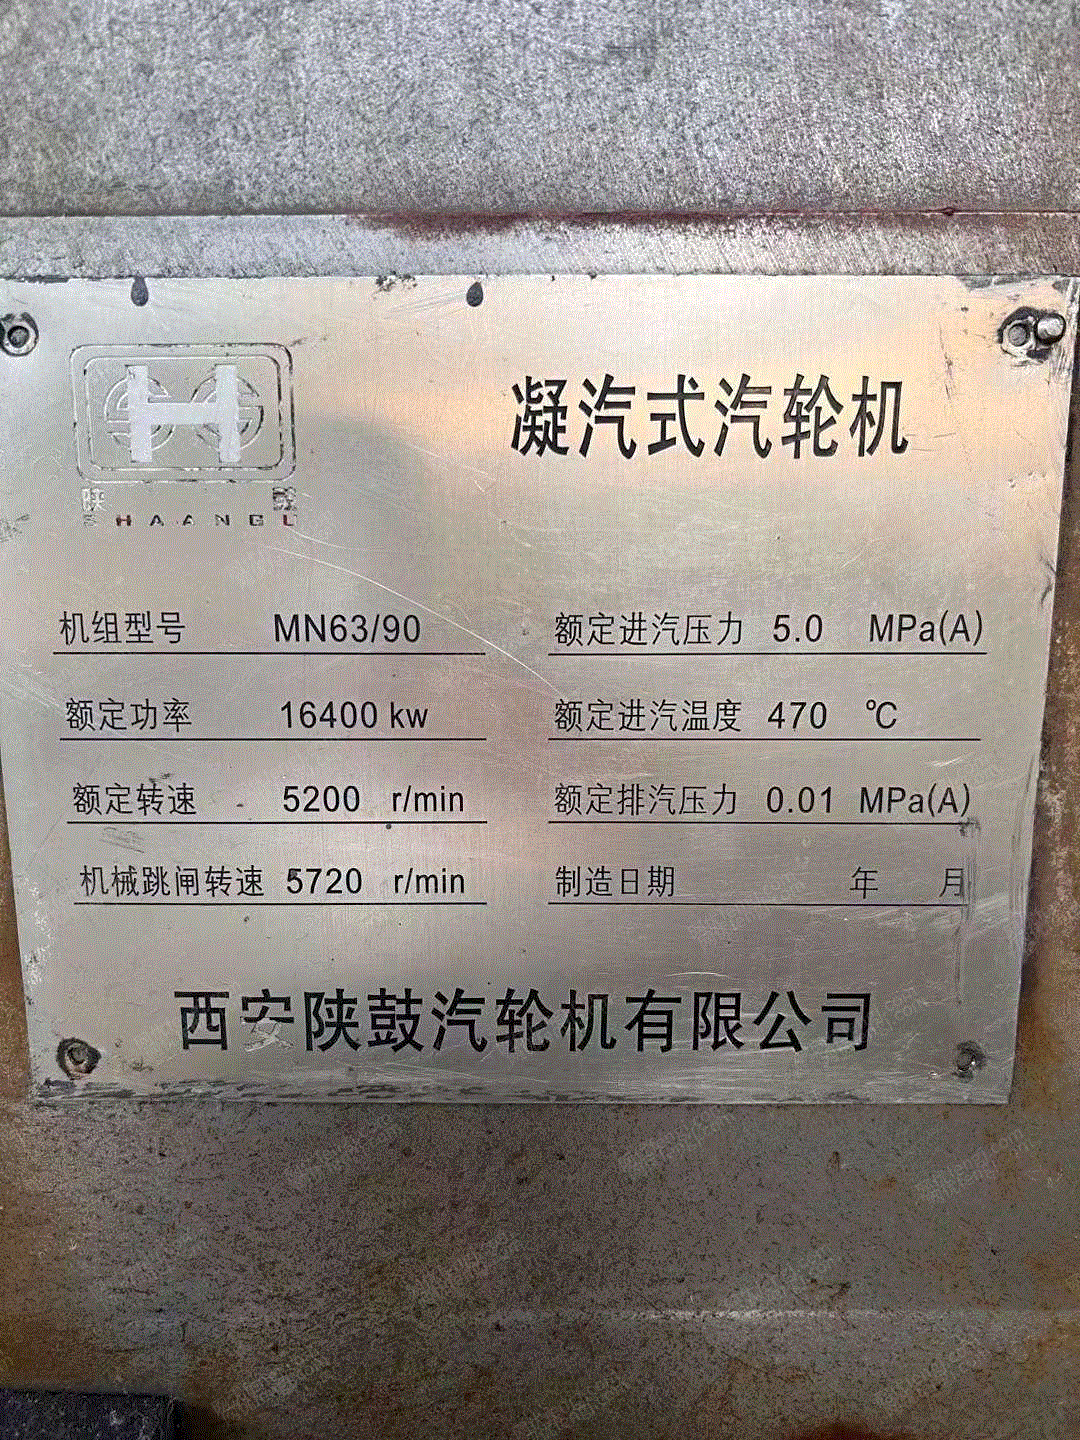 凝汽式汽轮机
陕鼓
SHAANGU
机组型号 MN63/90 额定进汽压力 5.0 MPa(A)
额定功率 16400 kw 额定进汽温度 470 ℃
额定转速 5200 r/min 额定排汽压力 0.01 MPa(A)
机械跳闸转速 5720 r/min 制造日期 年 月
西安陕鼓汽轮机有限公司